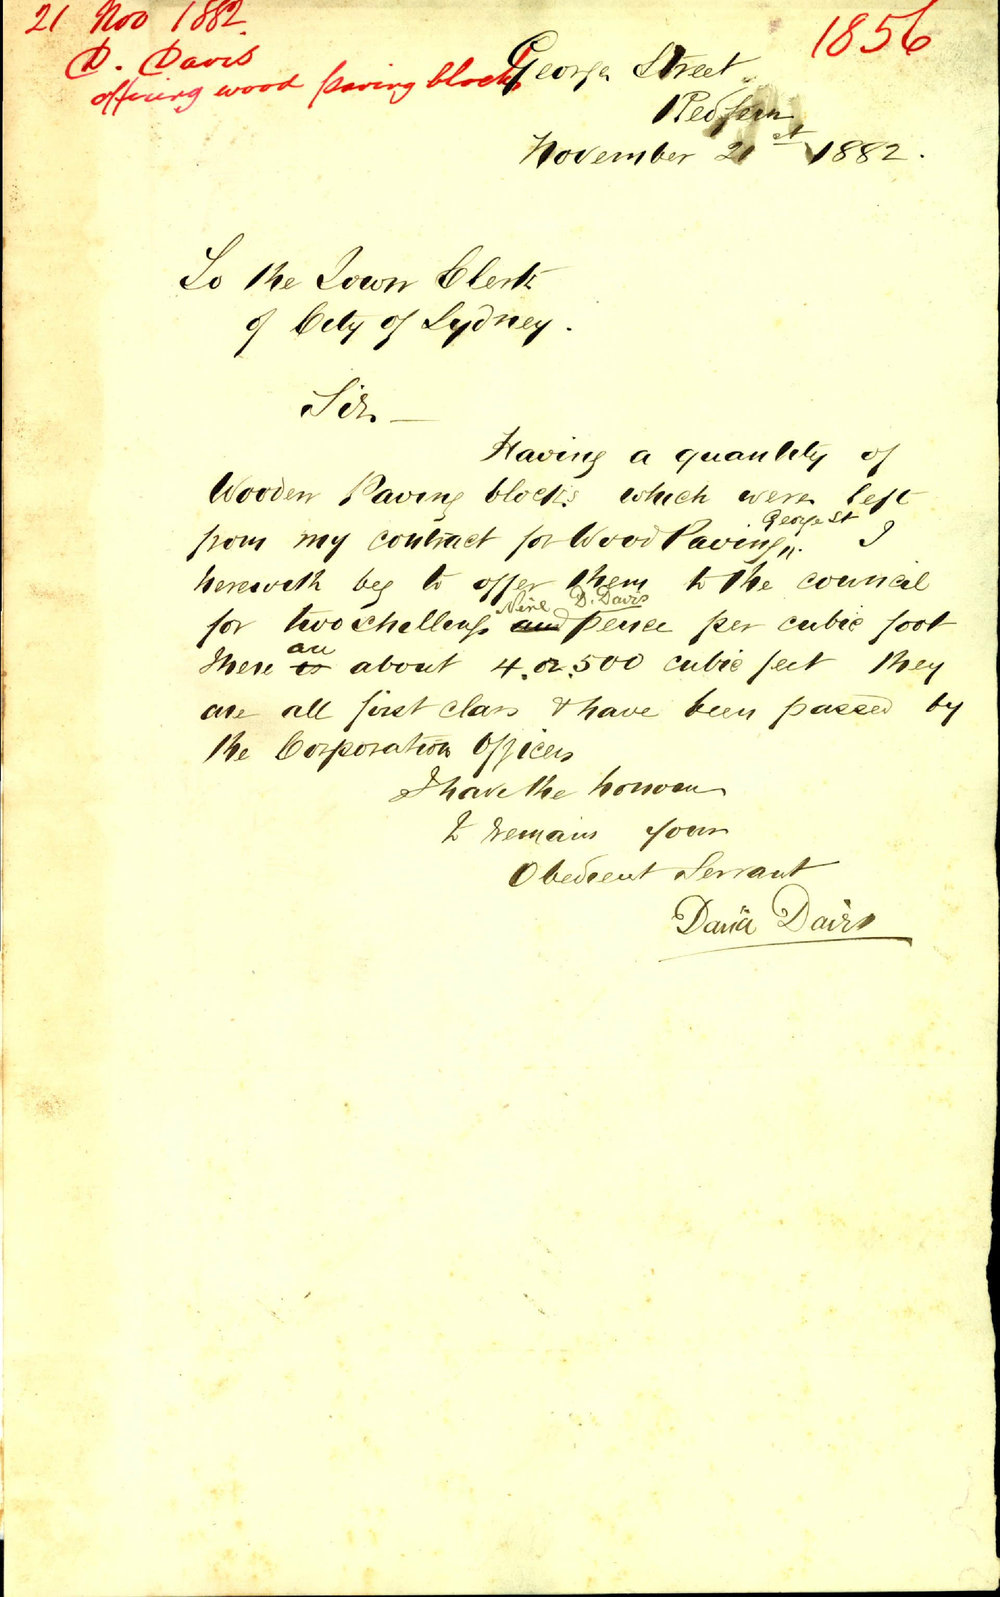 21 Nov 1882.
D. Davis
offering wood paving blocks
1856
George Street
Redfern
November 21st 1882.
To the Town Clerk
of City of Sydney.
Sir —
Having a quantity of
Wooden Paving blocks which were left
from my contract for Wood Paving George St I
herewith beg to offer them to the council
for two shillings and Nine D. Davis pence per cubic foot
there is are about 4. or. 500 cubic feet they
are all first class & have been passed by
the Corporation Officers
I have the honour
To remain your
Obedient Servant
David Davis